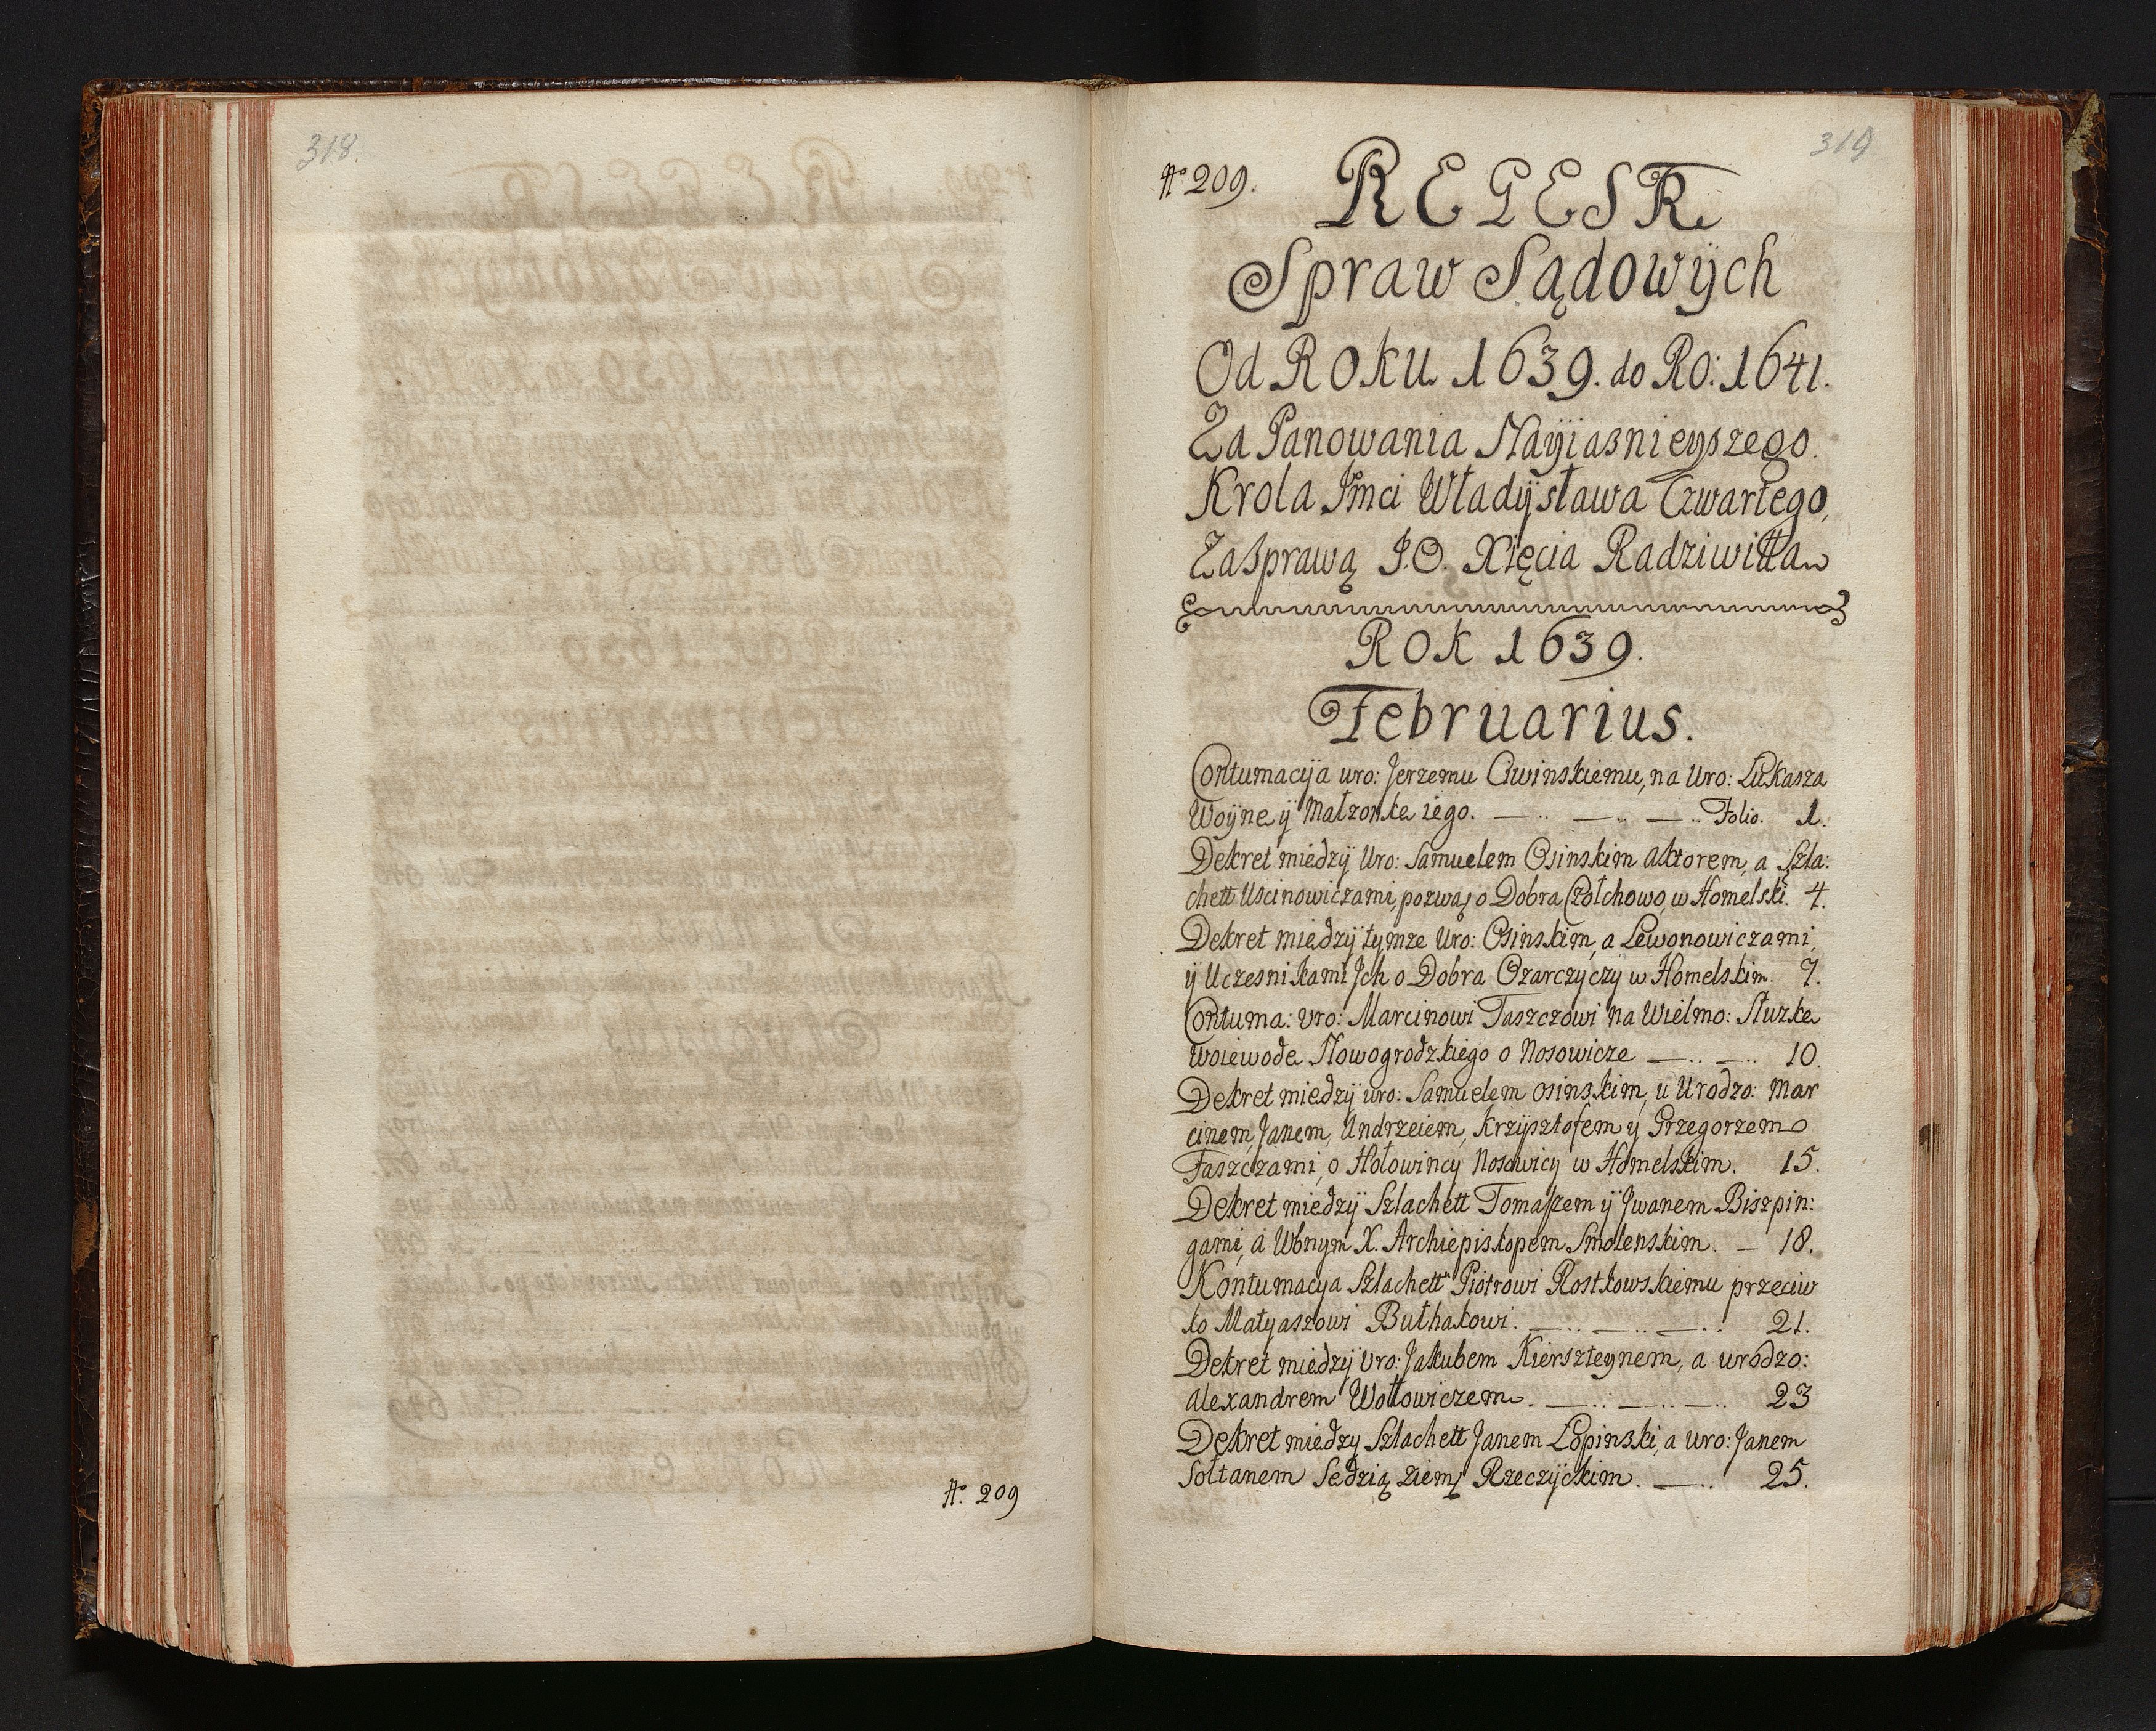 318.
Aº. 209
319
Aº 209.
REGESTR
Spraw Sądowÿch
Od Roku 1639. do Ro: 1641.
Za Panowania Nayiasnieyszego
Krola Jmci Władÿsława Czwartego,
Za Sprawą J.O. Xięcia Radziwiłła
Rok 1639.
Februarius.
Contumacÿa uro: Jerzemu Cłwinskiemu, na Uro: Łukasza
Woÿne ÿ Małzonke iego. Folio. 1.
Dekret miedzÿ Uro: Samuelem Osinskim Aktorem, a Szla:
chett Uscinowiczami, pozwą o Dobra Czołchowo, w Homelski. 4.
Dekret miedzÿ tymze Uro: Osinskim, a Lewonowiczami,
ÿ Uczesnikami Jch o Dobra Ozarczyczy w Homelskim. 7.
Contuma: Uro: Marcinowi Faszczowi na Wielmo: Słuzke
Woiewode Nowogrodzkiego o Nosowicze 10.
Dekret miedzÿ uro: Samuelem Osinskim, u Urodzo: Mar
cinem, Janem, Andrzeiem, Krzÿsztofem y Grzegorzem
Faszczami, o Hołowincy Nosowicy w Homelskim. 15.
Dekret miedzÿ Szlachett Tomaszem ÿ Jwanem Biszpin:
gami, a Wbnym X. Archiepiskopem Smolenskim. 18.
Kontumacya Szlachett Piotrowi Rostkowskiemu przeciw
ko Matyaszowi Bułhakowi. 21.
Dekret miedzÿ Uro: Jakubem Kierszteynem, a urodzo:
Alexandrem Wołłowiczem. 23
Dekret miedzy Szlachett Janem Łopinski, a Uro: Janem
Sołtanem Sedzią Ziem: Rzeczÿckim. 25.